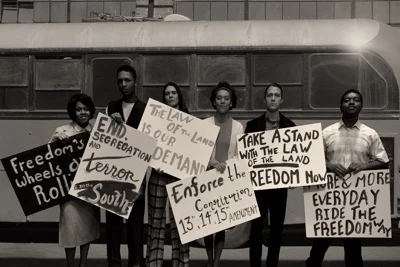 Freedom's
wheels are
Roll
END
SEGREGATION
AND
terror
South
The LAW
OF THE LAND
IS OUR
DEMAND
ENFORCE the
Constitution
13th, 14th, 15th
AMENDMENT
TAKE A STAND
WITH THE LAW
OF THE LAND
FREEDOM NOW
MORE & MORE
EVERYDAY
RIDE THE
FREEDOM WAY